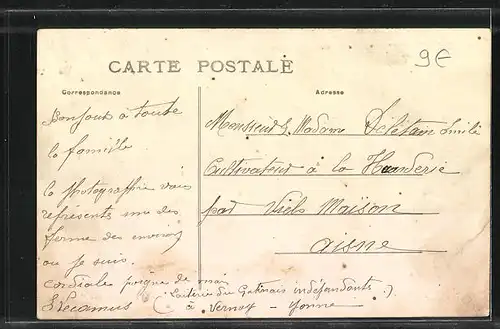 9€
CARTE POSTALE
Correspondance
Adresse
Bonjour à toute
la famille
la photographie vous
représente une des
ferme des environs
ou je suis.
cordiale poigne de main
Lecamus
Monsieur & Madame Delétain Emile
Cultivateur à la Handerie
par Viels Maison
aisne
(Laiterie du Gatinais indépendante)
à Vernoy - Yonne